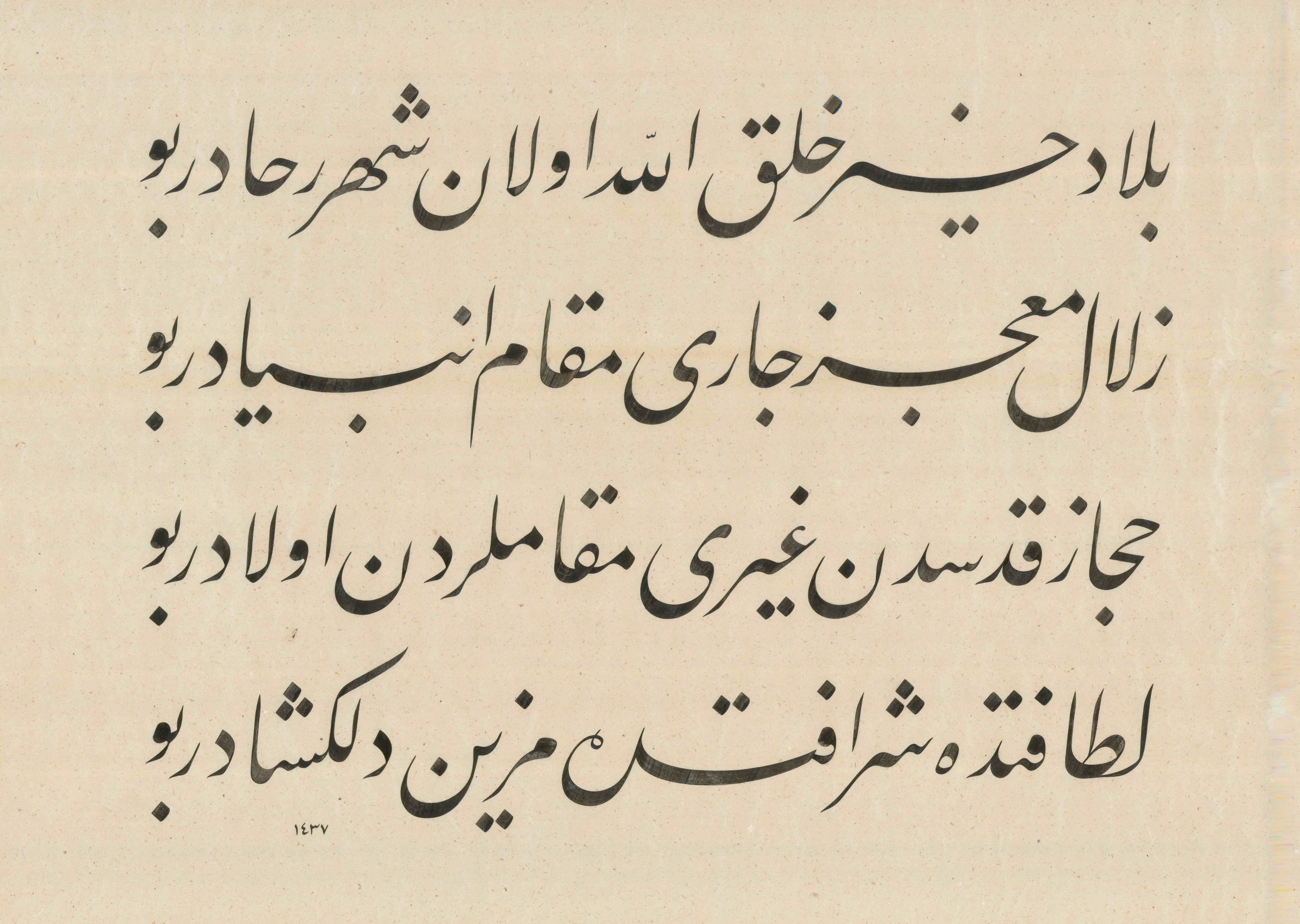 بلاد خیر خلق الله اولان شهر رحا در بو
زلال معجز جاری مقام انبیا در بو
حجاز قدسدن غیری مقاملردن اولادر بو
لطافتده شرافتله مزین دلکشادر بو
١٤٣٧